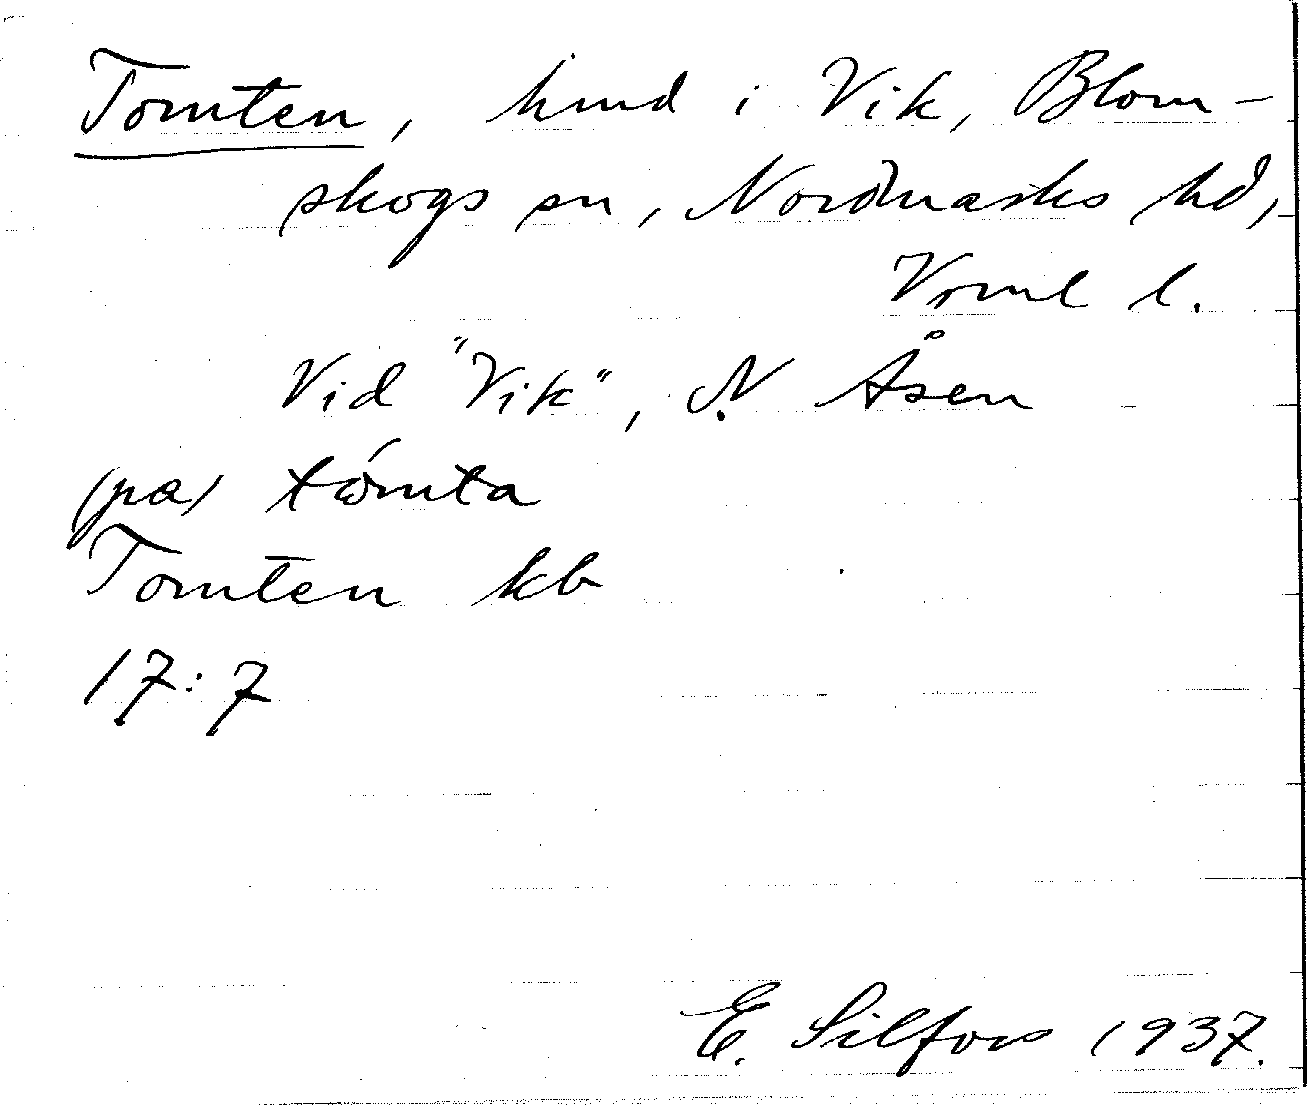 Tomten, hmd i Vik, Blom-
skogs sn, Nordmarks hd,
Vrml l.
Vid "Vik", N Åsen
(pa) tómta
Tomten kb
17:7
E. Silfors 1937.